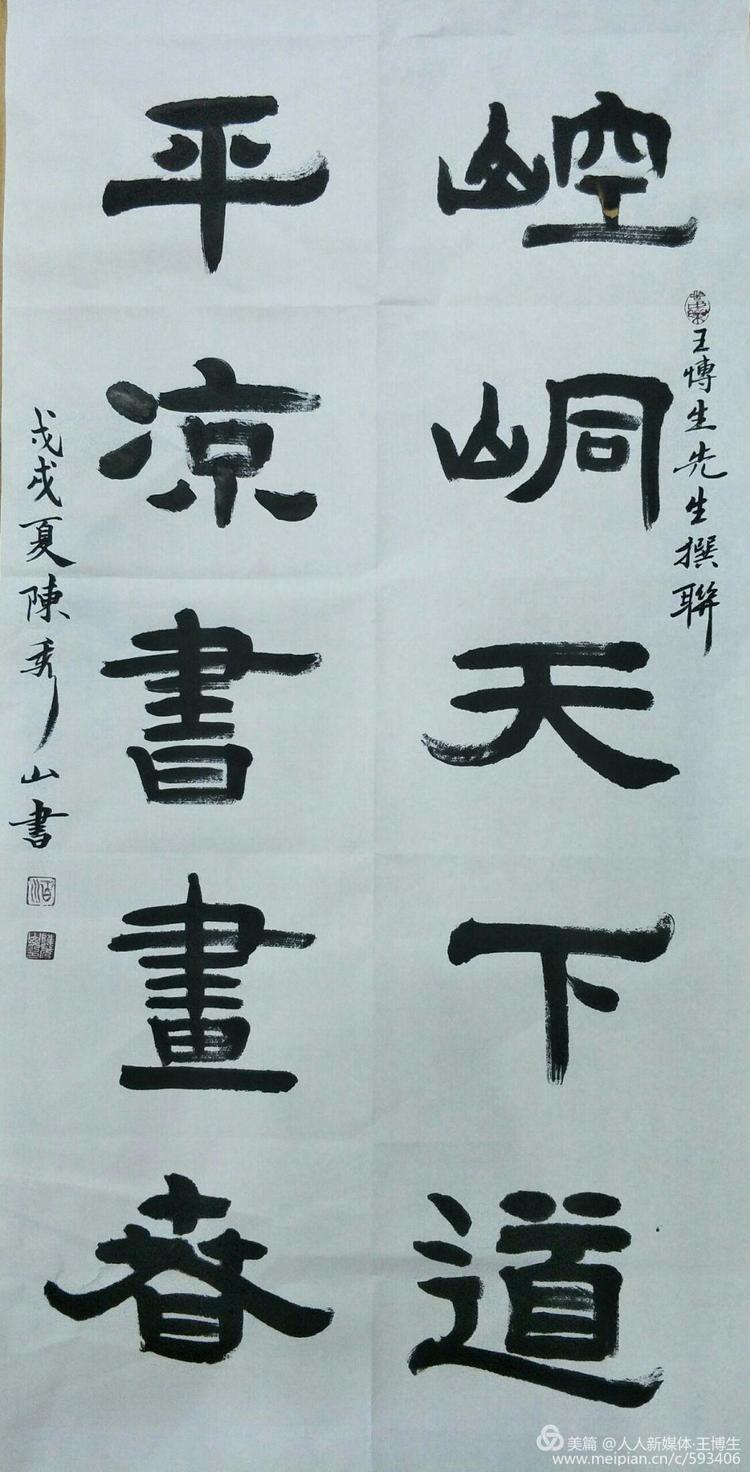 崆峒天下道
王愽生先生撰聯
平凉書畫春
戊戌夏陳秀山書
美篇 @人人新媒体·王博生
www.meipian.cn/c/593406